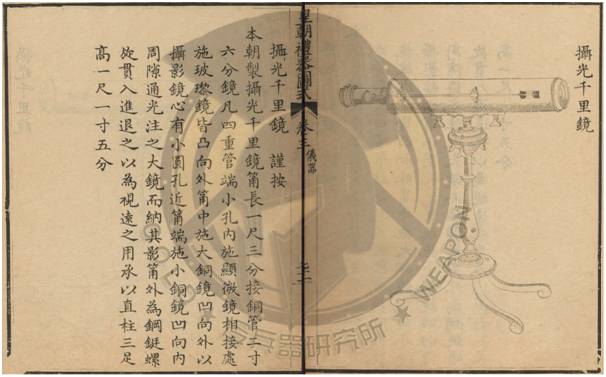 攝光千里鏡
皇朝禮器圖式 卷三 儀器
攝光千里鏡 謹按
本朝製攝光千里鏡筩長一尺三分接銅管二寸
六分鏡凡四重管端小孔內施顯微鏡相接處
施玻瓈鏡皆凸向外筩中施大銅鏡凹向外以
攝影鏡心有小圓孔近筩端施小銅鏡凹向內
周隙通光注之大鏡而納其影筩外為鋼鋌螺
旋貫入進退之以為視遠之用承以直柱三足
高一尺一寸五分
兵器研究所 ★ WEAPON